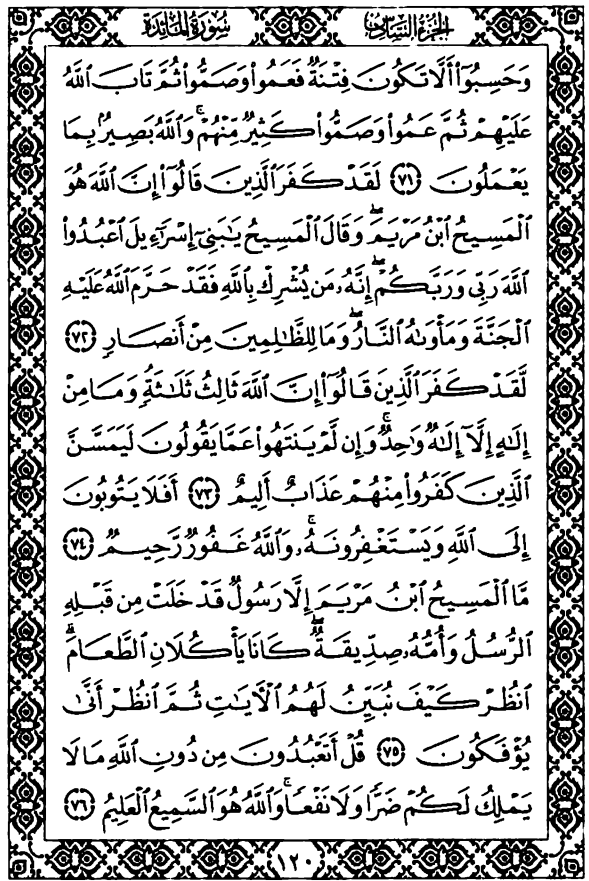 الجزء السادس سورة المائدة
وَحَسِبُوٓا۟ أَلَّا تَكُونَ فِتْنَةٌ فَعَمُوا۟ وَصَمُّوا۟ ثُمَّ تَابَ ٱللَّهُ
عَلَيْهِمْ ثُمَّ عَمُوا۟ وَصَمُّوا۟ كَثِيرٌ مِّنْهُمْ ۚ وَٱللَّهُ بَصِيرٌۢ بِمَا
يَعْمَلُونَ ٧١ لَقَدْ كَفَرَ ٱلَّذِينَ قَالُوٓا۟ إِنَّ ٱللَّهَ هُوَ
ٱلْمَسِيحُ ٱبْنُ مَرْيَمَ ۖ وَقَالَ ٱلْمَسِيحُ يَٰبَنِىٓ إِسْرَٰٓءِيلَ ٱعْبُدُوا۟
ٱللَّهَ رَبِّى وَرَبَّكُمْ ۖ إِنَّهُۥ مَن يُشْرِكْ بِٱللَّهِ فَقَدْ حَرَّمَ ٱللَّهُ عَلَيْهِ
ٱلْجَنَّةَ وَمَأْوَىٰهُ ٱلنَّارُ ۖ وَمَا لِلظَّٰلِمِينَ مِنْ أَنصَارٍ ٧٢
لَّقَدْ كَفَرَ ٱلَّذِينَ قَالُوٓا۟ إِنَّ ٱللَّهَ ثَالِثُ ثَلَٰثَةٍ ۘ وَمَا مِنْ
إِلَٰهٍ إِلَّآ إِلَٰهٌ وَٰحِدٌ ۚ وَإِن لَّمْ يَنتَهُوا۟ عَمَّا يَقُولُونَ لَيَمَسَّنَّ
ٱلَّذِينَ كَفَرُوا۟ مِنْهُمْ عَذَابٌ أَلِيمٌ ٧٣ أَفَلَا يَتُوبُونَ
إِلَى ٱللَّهِ وَيَسْتَغْفِرُونَهُۥ ۚ وَٱللَّهُ غَفُورٌ رَّحِيمٌ ٧٤
مَّا ٱلْمَسِيحُ ٱبْنُ مَرْيَمَ إِلَّا رَسُولٌ قَدْ خَلَتْ مِن قَبْلِهِ
ٱلرُّسُلُ وَأُمُّهُۥ صِدِّيقَةٌ ۖ كَانَا يَأْكُلَانِ ٱلطَّعَامَ ۗ
ٱنظُرْ كَيْفَ نُبَيِّنُ لَهُمُ ٱلْءَايَٰتِ ثُمَّ ٱنظُرْ أَنَّىٰ
يُؤْفَكُونَ ٧٥ قُلْ أَتَعْبُدُونَ مِن دُونِ ٱللَّهِ مَا لَا
يَمْلِكُ لَكُمْ ضَرًّا وَلَا نَفْعًا ۚ وَٱللَّهُ هُوَ ٱلسَّمِيعُ ٱلْعَلِيمُ ٧٦
١٢٠